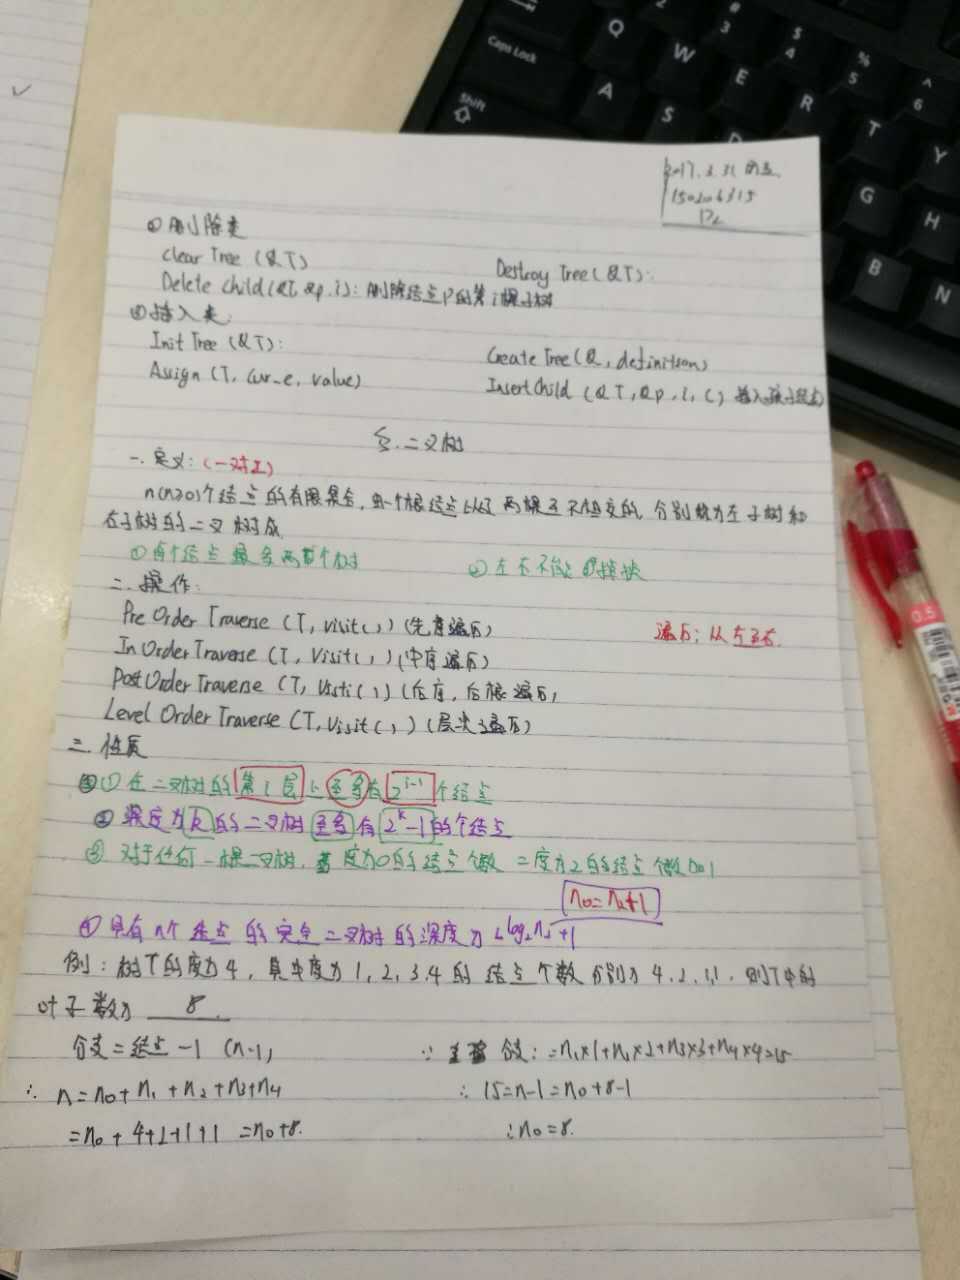 Caps Lock
Shift
Q W E R T Y
A S G H
B N
# 3 $ 4 % 5 ^ 6
2017.3.31
150206315
删除类
Clear Tree (&T)
Destroy Tree (&T):
Delete Child (&T, &p, i): 删除结点P的第i棵子树
插入类:
Init Tree (&T):
Create Tree (&, definition)
Assign (T, cur_e, value)
Insert Child (&T, &p, i, c) 插入孩子结点
二叉树
一. 定义: (一对二)
n(n≥0)个结点的有限集合, 由一个根结点以及两棵互不相交的, 分别称为左子树和
右子树的二叉树成
①每个结点最多两个树
②左右不能掉换
二. 操作:
Pre Order Traverse (T, visit()) (先序遍历)
遍历: 从左至右.
In Order Traverse (T, Visit()) (中序遍历)
Post Order Traverse (T, Visti()) (后序, 后根遍历)
Level Order Traverse (T, Visit()) (层次遍历)
三. 性质
①在二叉树的第i层上至多有2^{i-1}个结点
②深度为k的二叉树至多有2^k-1的个结点
③对于任何一棵二叉树, 度为0的结点个数=度为2的结点个数加1
n0=n2+1
④具有n个结点的完全二叉树的深度为⌊log2n⌋+1
例: 树T的度为4, 其中度为1, 2, 3, 4的结点个数分别为4, 2, 1, 1. 则T中的
叶子数为 8.
分支=结点-1 (n-1)
∵ 分支: =n1×1+n2×2+n3×3+n4×4=15
∴ n=n0+n1+n2+n3+n4
∴ 15=n-1=n0+8-1
=n0+4+2+1+1=n0+8.
∴n0=8.
0.5